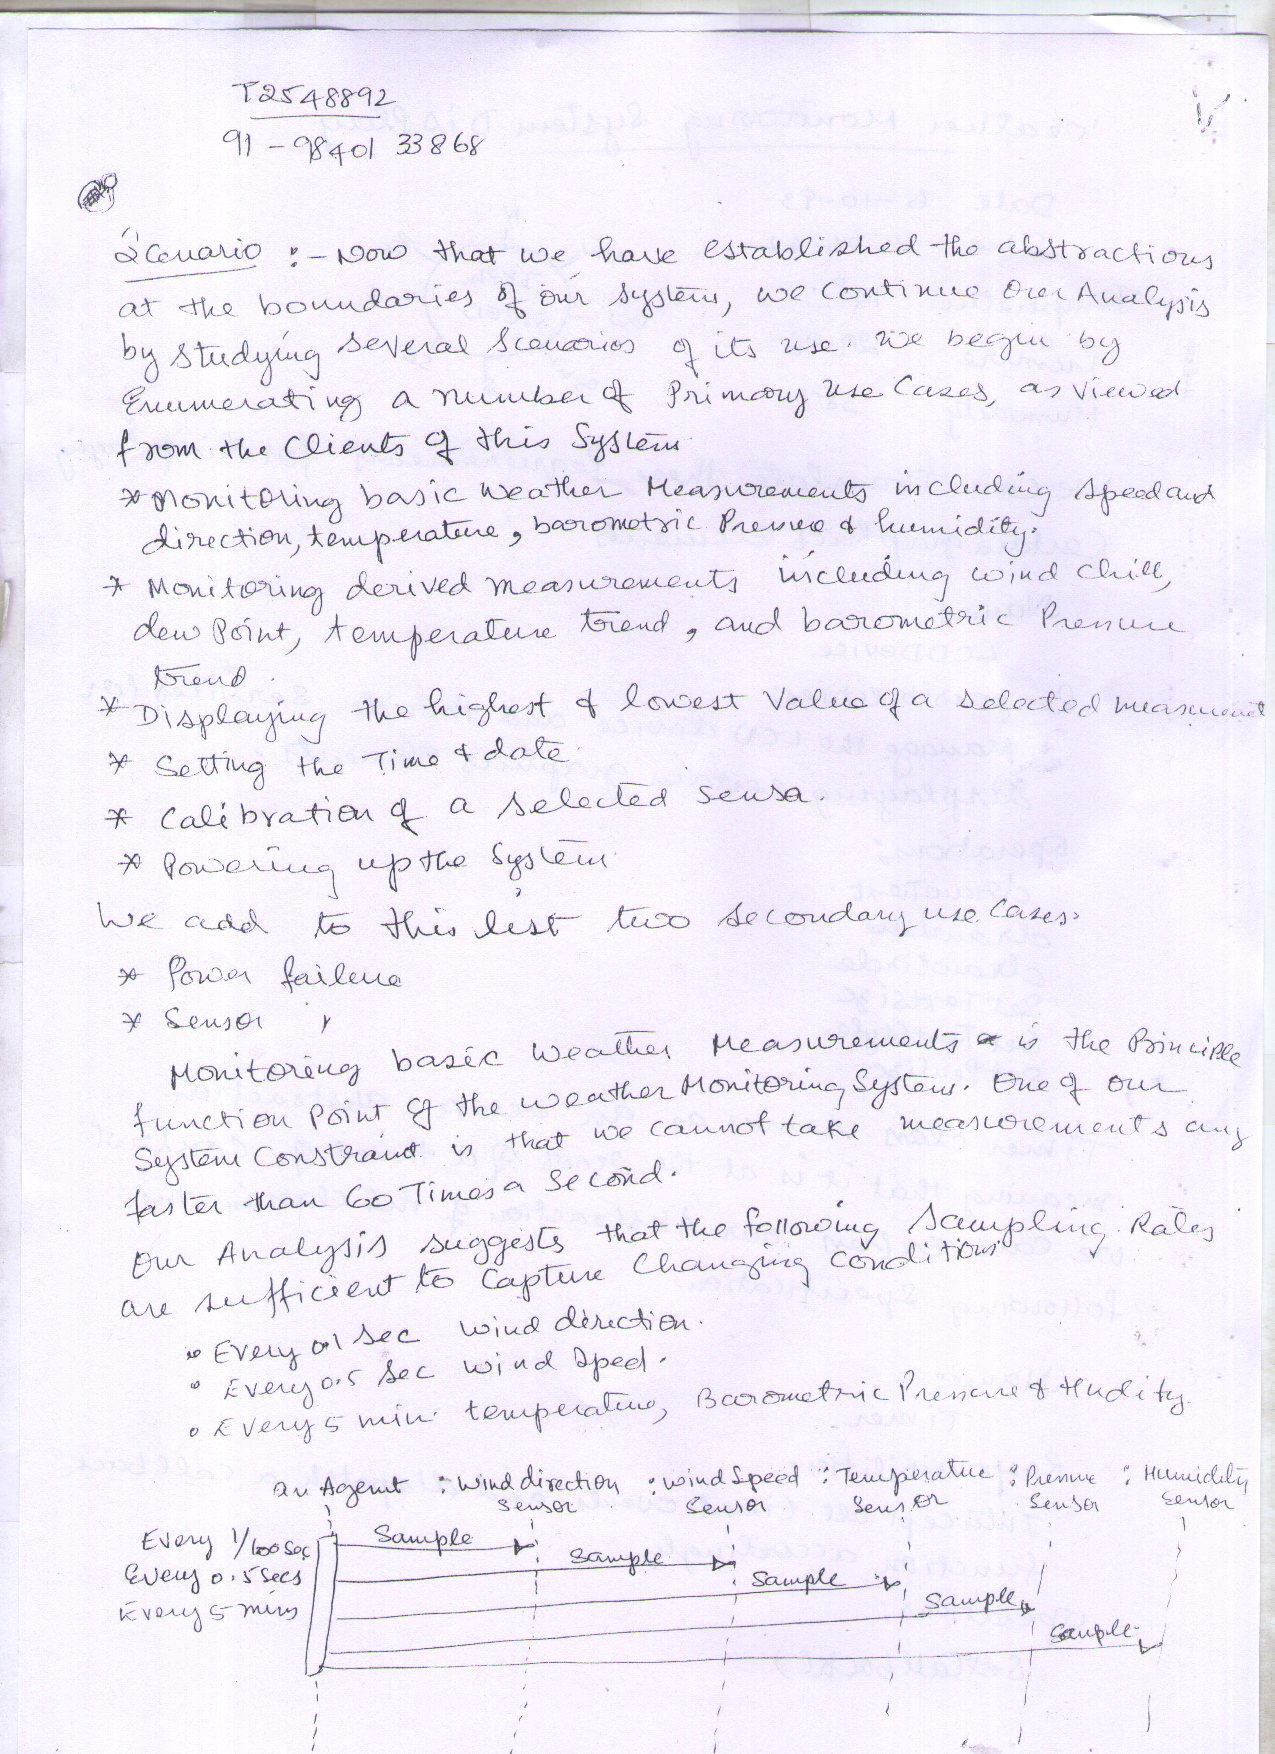 T2548892
91 - 98401 33868
Scenario : - Now that we have established the abstractions
at the boundaries of our system, we continue our Analysis
by studying several Scenarios of its use. We begin by
Enumerating a number of Primary use Cases, as viewed
from the Clients of this System.
* Monitoring basic weather Measurements including speed and
direction, temperature, barometric Pressure & humidity.
* Monitoring derived measurements including wind chill,
dew Point, temperature trend, and barometric Pressure
trend.
* Displaying the highest & lowest Value of a selected measurement
* Setting the Time & date.
* Calibration of a selected sensor.
* Powering up the System.
We add to this list two secondary use Cases.
* Power failure
* Sensor "
Monitoring basic weather Measurements is the Principle
function Point of the weather Monitoring System. One of our
System Constraint is that we cannot take measurements any
faster than 60 Times a Second.
Our Analysis suggests that the following Sampling Rates
are sufficient to Capture Changing Conditions
• Every 0.1 sec wind direction.
• Every 0.5 Sec wind Sped.
• Every 5 min. temperature, Barometric Pressure & Hudity.
an Agent : Wind direction : wind Speed : Temperature : Pressure : Humidity
Sensor Sensor Sensor Sensor Sensor
Every 1/100 Sec Sample
Every 0.5 Secs Sample
Sample
Every 5 mins Sample
Sample